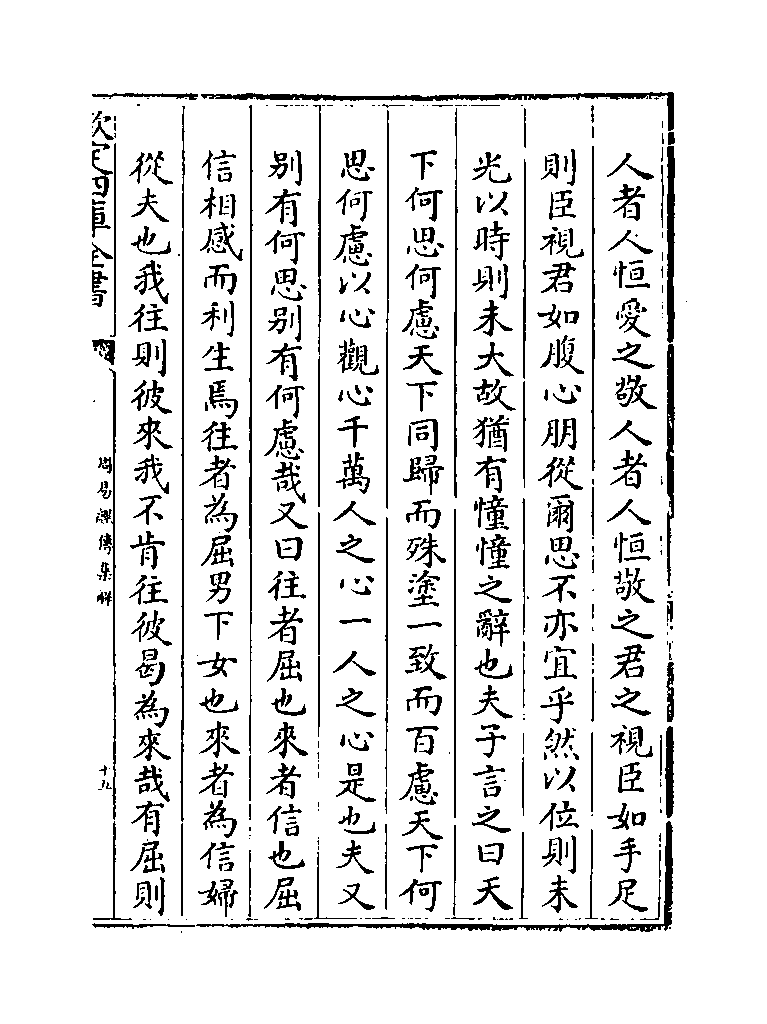 人者人恒愛之敬人者人恒敬之君之視臣如手足
則臣視君如腹心朋從爾思不亦宜乎然以位則未
光以時則未大故猶有憧憧之辭也夫子言之曰天
下何思何慮天下同歸而殊塗一致而百慮天下何
思何慮以心觀心千萬人之心一人之心是也夫又
别有何思别有何慮哉又曰往者屈也來者信也屈
信相感而利生焉往者為屈男下女也來者為信婦
從夫也我往則彼來我不肯往彼曷為來哉有屈則
欽定四庫全書
周易經傳集解
十五